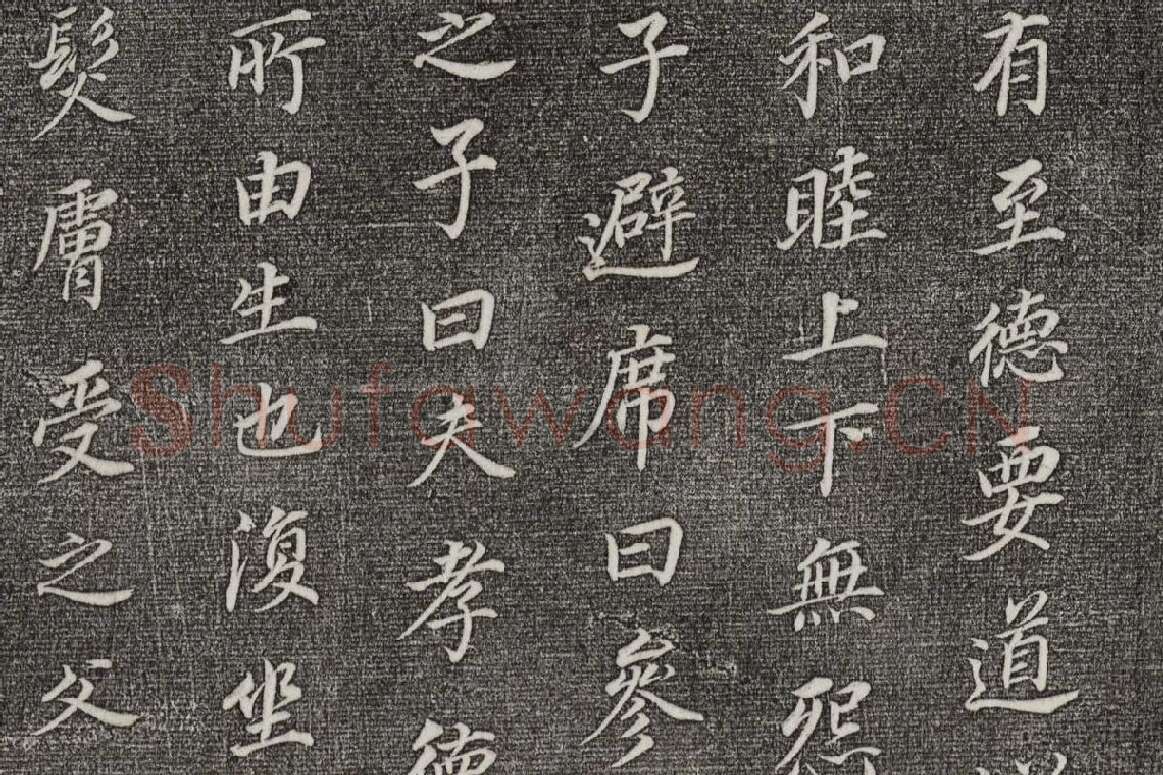 有至德要道
和睦上下無怨
子避席曰參
之子曰夫孝德
所由生也復坐
髮膚受之父
Shufawang.CN